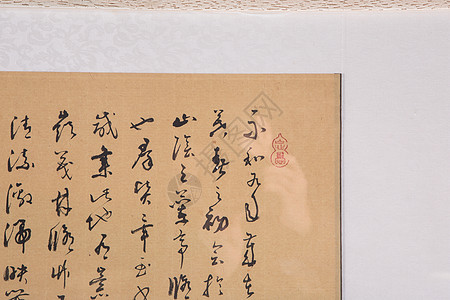 永和九年歲在
暮春之初會於
山陰之蘭亭脩
也群賢畢至少
咸集此地有崇
嶺茂林脩竹又
清流激湍映